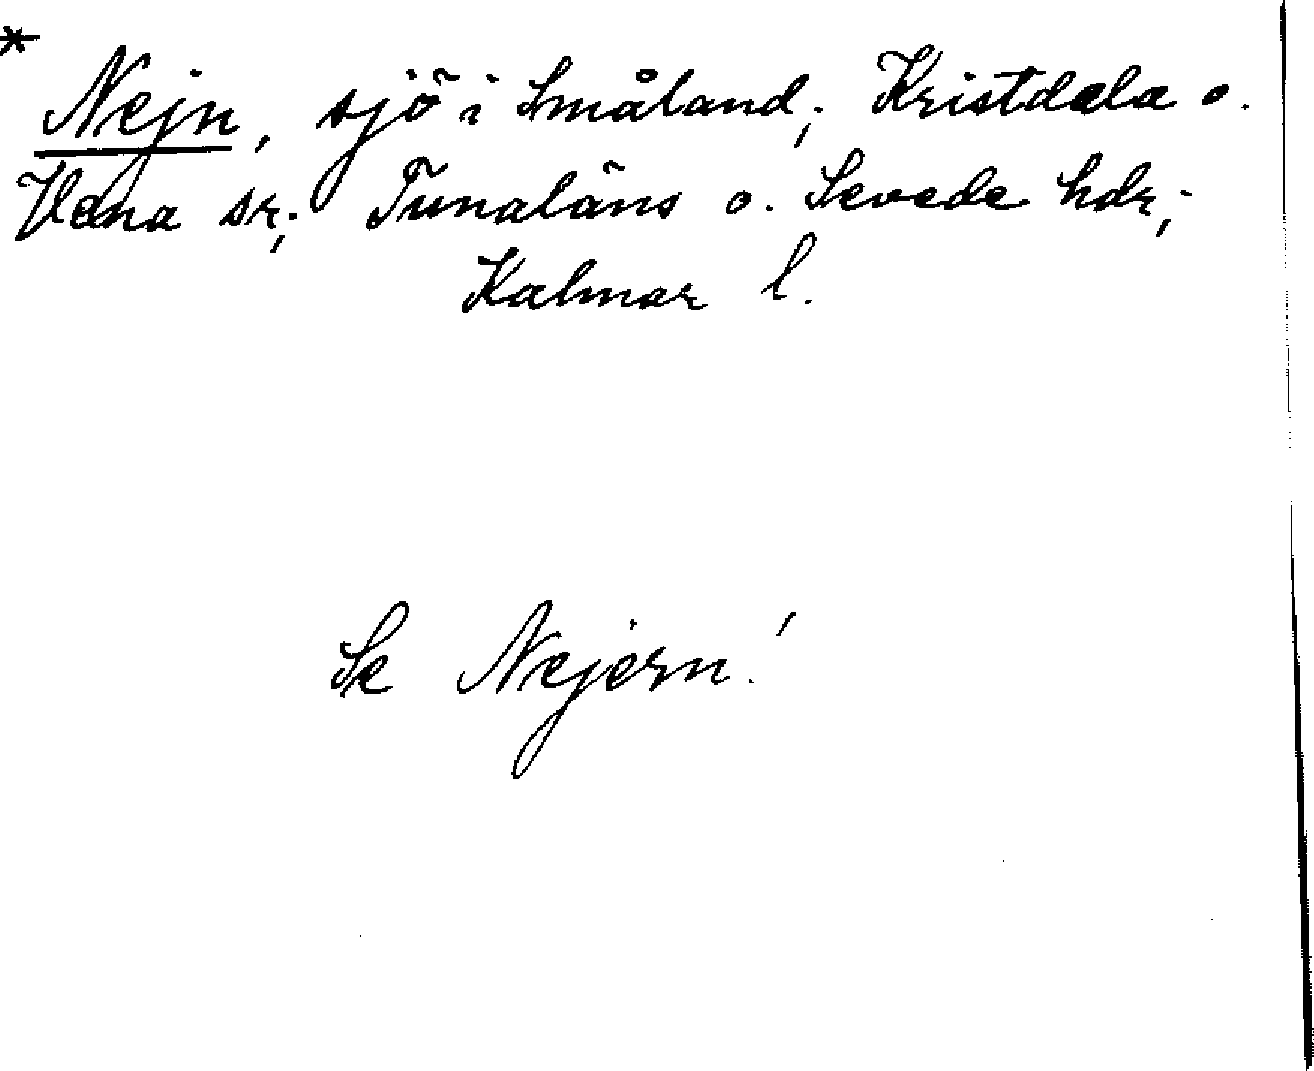 * Nejn, sjö i Småland; Kristdala o.
Vena sr; Tunaläns o. Sevede hdr;
Kalmar l.
Se Nejern!